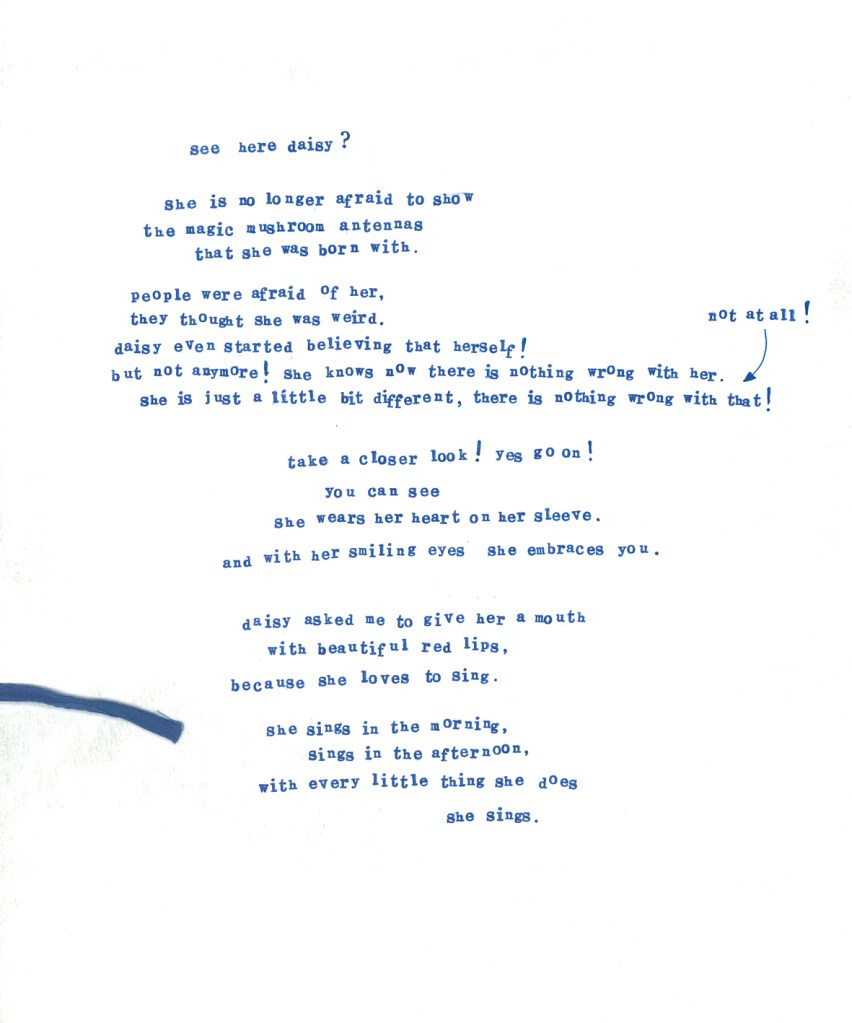 see here daisy?
she is no longer afraid to show
the magic mushroom antennas
that she was born with.
people were afraid of her,
they thought she was weird.
not at all!
daisy even started believing that herself!
but not anymore! she knows now there is nothing wrong with her.
she is just a little bit different, there is nothing wrong with that!
take a closer look! yes go on!
you can see
she wears her heart on her sleeve.
and with her smiling eyes she embraces you.
daisy asked me to give her a mouth
with beautiful red lips,
because she loves to sing.
she sings in the morning,
sings in the afternoon,
with every little thing she does
she sings.